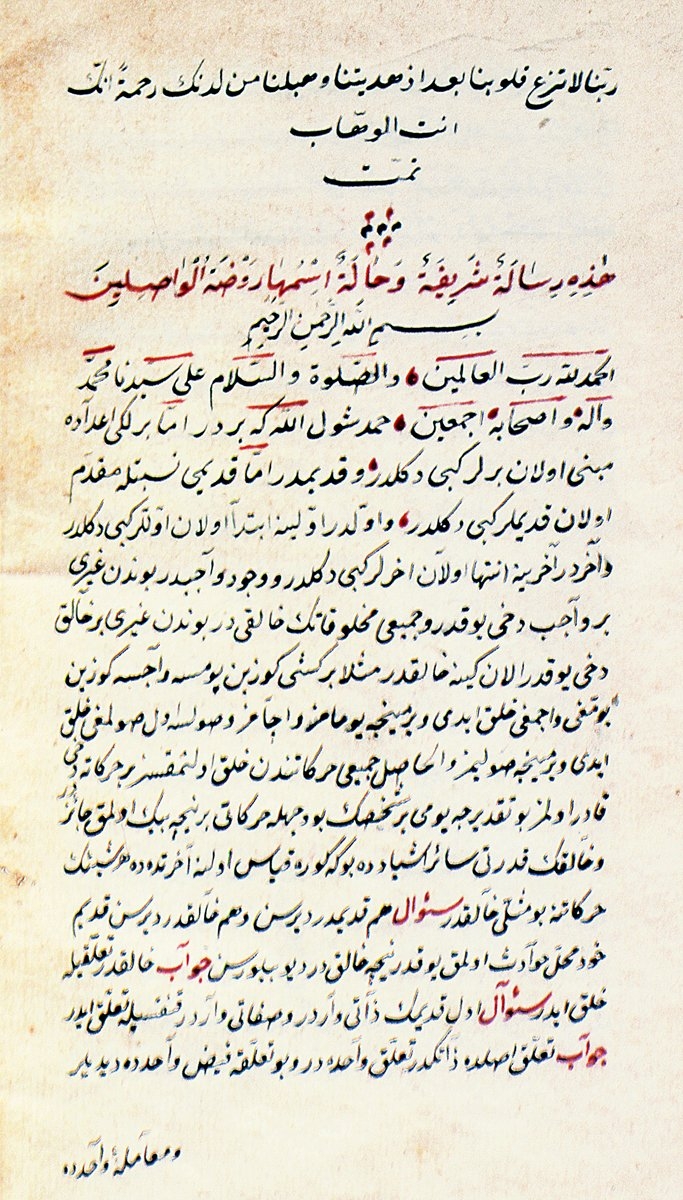 ربّنا لا تزغ قلوبنا بعد اذ هديتنا وهبلنا من لدنك رحمةً انّك
انت الوهّاب
تمّت
هٰذِهِ رِسَالَةٌ شَرِيفَةٌ وَحَالَةٌ اِسْمُهَا رَوْضَةُ الْوَاصِلِينَ
بسم الله الرّحمن الرّحيم
الحمد لله ربّ العالمين والصّلوة والسّلام على سيّدنا محمّد
وآله واصحابه اجمعين حمد شول الله كه بر در امّا بر لكى اعداده
مبنى اولان برلر كبى دكلدر وقديمدر امّا قديمى نسبتله مقدّم
اولان قديملر كبى دكلدر واوّلدر اوّلينه ابتدا اولان اوّللر كبى دكلدر
وآخردر آخرينه انتها اولان اخرلر كبى دكلدر ووجود واجبدر بوندن غيرى
بر واجب دخى يوقدر وجميعى مخلوقاتك خالقى در بوندن غيرى بر خالق
دخى يوقدر الان كينه خالقدر مثلا بر كشى كوزين يومسه وآجسه كوزين
يومّغى واجمغى خلق ايدى ويرمينجه يومامز واجامز وصولسه اول صولمغى خلق
ايدى ويرمينجه صوليمز والحاصل جميعى حركاتندن خلق اولنمقسز بر حركاته دخى
قادر اولمز بو تقديرجه يومى بر شخصك بو جمله حركاتى بر نيجه بيك اولمق جائز در
وخالقك قدرتى سائر اشياده بوكه كوره قياس اولنه آخرتده ده هر شيئك
حركاتنه بو مثلى خالقدر سئوال هم قديمدر ديرسن وهم خالقدر ديرسن قديم
خود محلّ حوادث اولمق يوقدر نيجه خالق در ديو بيلورسن جواب خالقدر تعلّقيله
خلق ايدر سئوال اول قديمك ذاتى واردر وصفاتى واردر قنغيسيله تعلّق ايدر
جواب تعلّق اصلده ذاتكدر تعلّق واحده در وبو تعلّقه فيض واحد ده ديديلر
ومعاملۀ واحدده